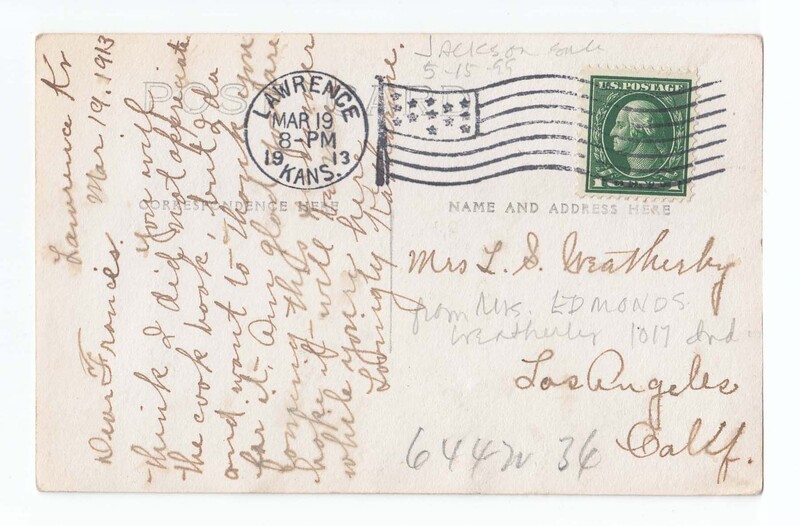 Lawrence Ks
Mar 19, 1913
Dear Francis.
You will
think I did not appreciate
the cook book, but I do
and want to thank you
for it. Am glad you are
coming this
hope it will
while you're here.
Lovingly
POST CARD
CORRESPONDENCE HERE
LAWRENCE
MAR 19
8-PM
1913
KANS.
JACKSON sale
5-15-99
U.S. POSTAGE
1
NAME AND ADDRESS HERE
Mrs L. S. Weatherby
from Mrs. EDMONDS
Weatherley 1017 Ind.
Los Angeles
Calif.
644 W 36